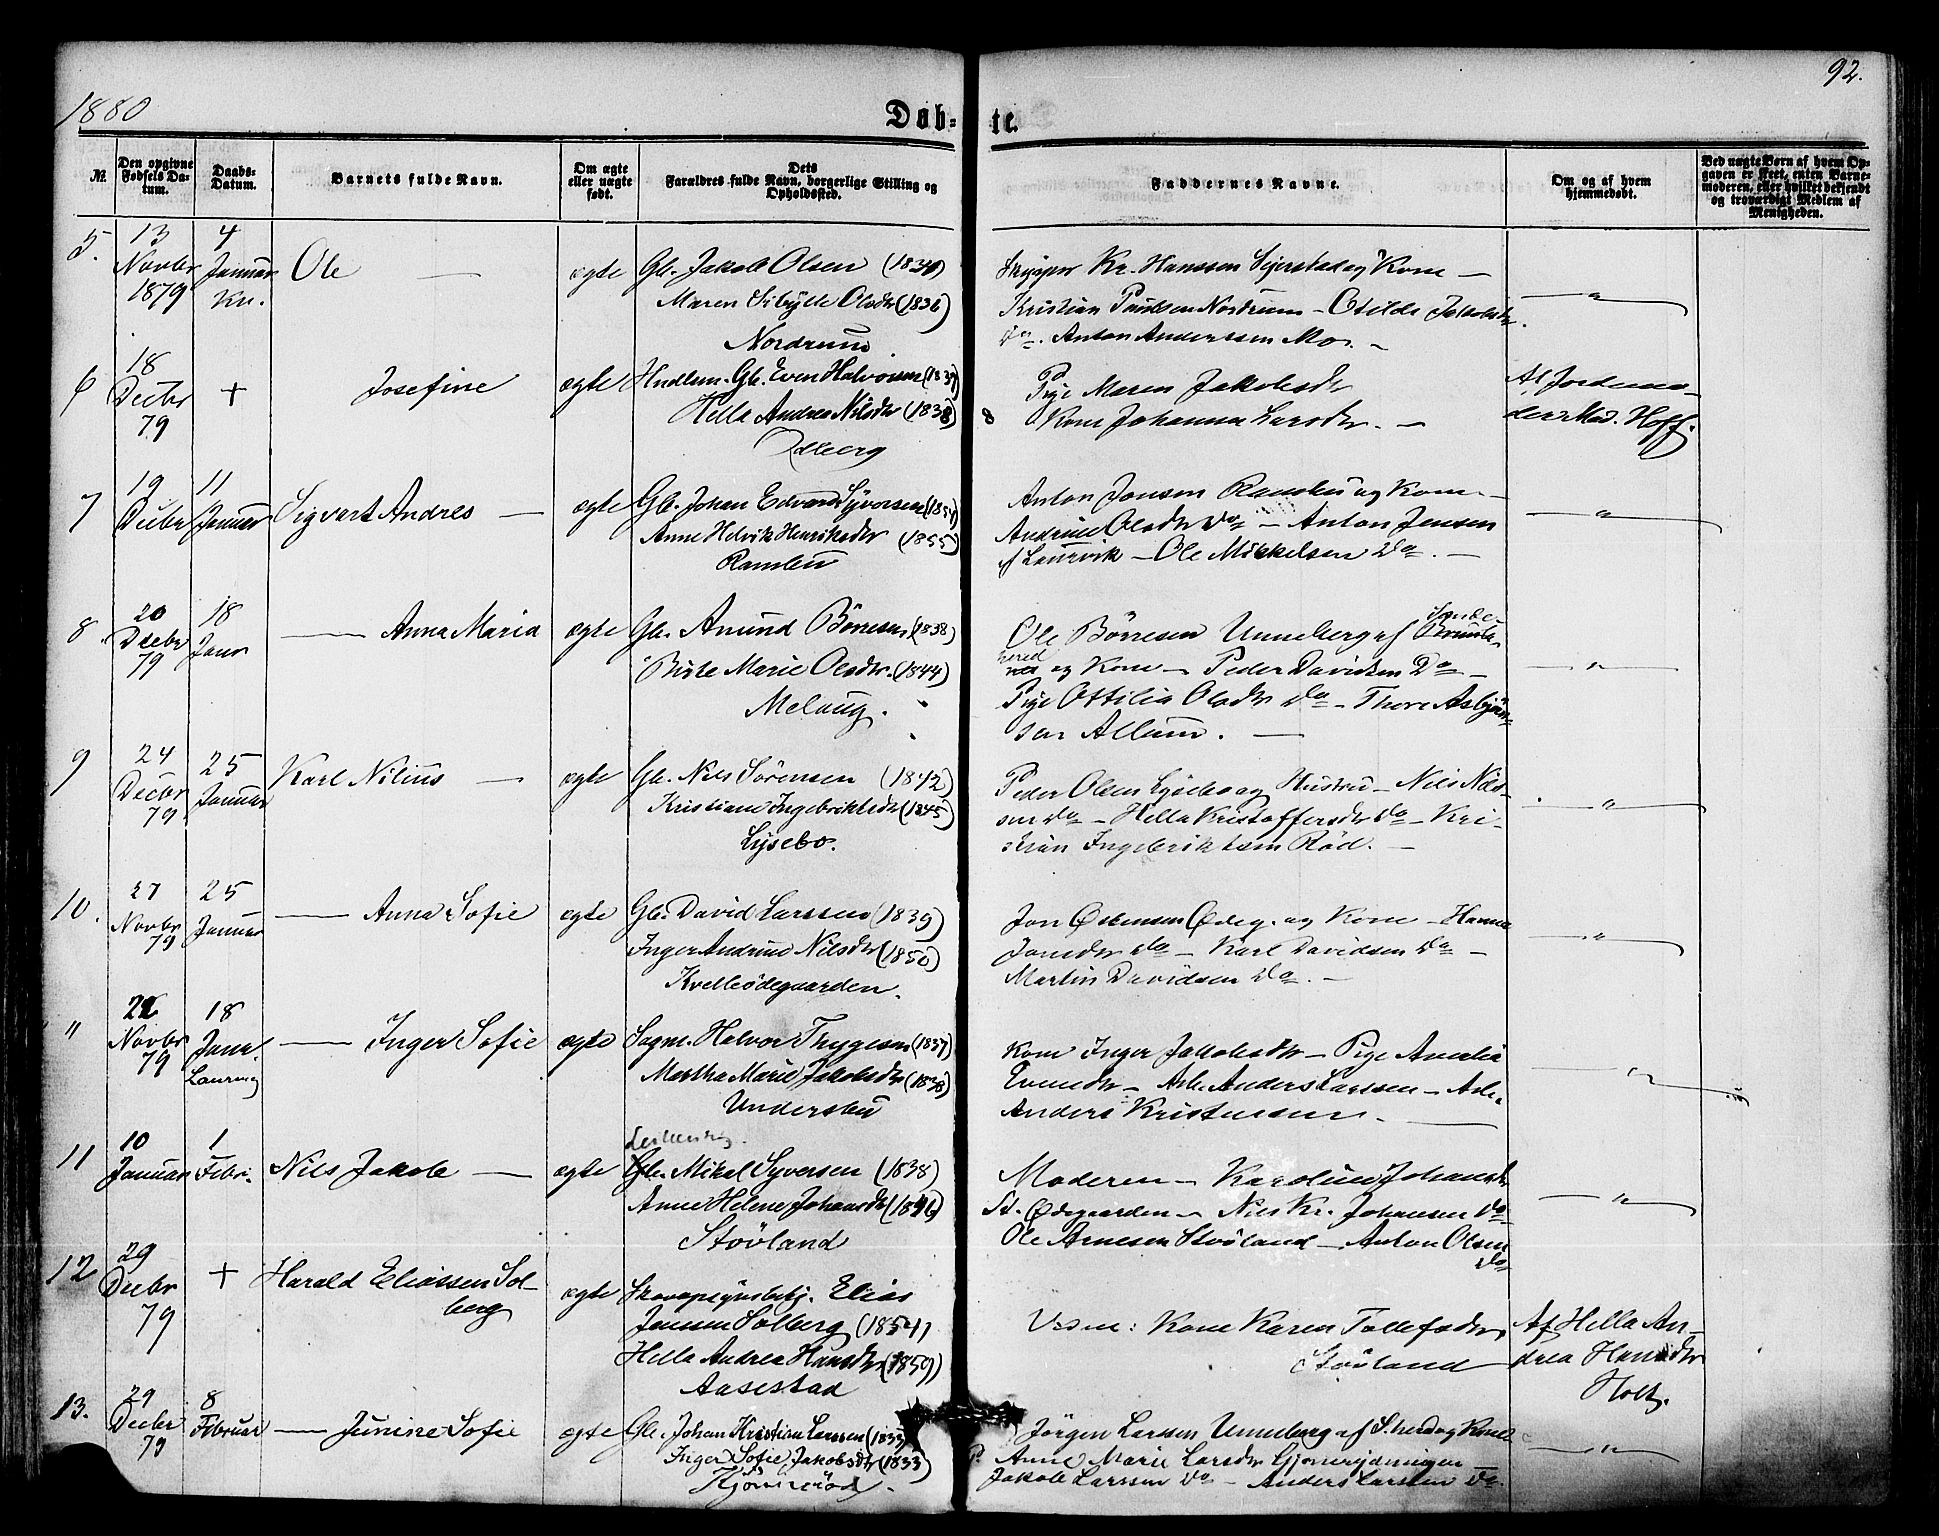 1880
92.
Døb-te.
№
Den opgivne Fødsels Datum.
Daabs-Datum.
Barnets fulde Navn.
Om ægte eller uægte født.
Dets Forældres fulde Navn, borgerlige Stilling og Opholdssted.
Faddernes Navne.
Om og af hvem hjemmedøbt.
Ved uægte Børn af hvem Opgaven er skeet, enten Barnemoderen, eller hvilket bekjendt og troværdigt Medlem af Menigheden.
5.
13 Novbr 1879
4 Januar
Ole
ægte
Gb. Jakob Olsen
Maren Sibylle Olsdtr (1836)
Nordrum
Skipper Kr. Hanssen Sejerstad og Kone —
Kristian Paulsen Nordrum — Otilde Jakobsdtr
Do. Anton Anderssen Mo. —
6
18 Decbr 79
+
Josefine
ægte
Gb. Even Halvorsen
Hella Andrea Nilsdtr (1838)
Odberg
Pige Maren Jakobsdtr
Kone Johanna Larsdtr. —
Af Jordemoderen Mad. Hoff.
7
19 Decbr
11 Januar
Sigvart Andres —
ægte
Gb. Johan Edvard Syversen
Anne Helvik Henriksdtr (1855)
Ramsbu
Anton Jonsen Ramsbu og Kone —
Andrine Olsdtr Do — Anton Jensen
af Laurvik — Ole Mikkelsen Do. —
8
20 Decbr 79
18 Janr
— Anna Maria
ægte
Gb. Anund Børresen (1838)
Birte Marie Olsdtr. (1844)
Melaug.
Ole Børresen Unneberg af Sandeherred
og Kone — Peder Davidsen Do —
Pige Ottilia Olsdtr Do — Thore Asbjørnsen
Allum. —
9
24 Decbr 79
25 Januar
Karl Nilius —
ægte
Gb. Nils Sørensen (1842)
Kristiane Ingebriktsdtr (1845)
Lysebo.
Peder Olsen Lysebo og Hustru — Nils Nilssen
Do — Hella Kristoffersdtr Do — Kristian
Ingebriktsen Rød. —
10.
27 Novbr 79
25 Januar
— Anna Sofie
ægte
Gb. David Larssen (1839)
Inger Andrine Nilsdtr (1850)
Kvelleødegaarden.
Jon Østensen Ødeg. og Kone — Hanna
Jonsdtr Do — Karl Davidsen Do —
Martin Davidsen Do. —
"
Novbr 79
18 Janr.
— Inger Sofie
ægte
Sagm. Halvor Thygesen
Martha Marie Jakobsdtr (1838)
Undersbu
Kone Inger Jakobsdtr — Pige Amalia
Evensdtr — Arb. Anders Larssen — Arb.
Anders Kristensen —
11
10 Januar
1 Febr.
Nils Jakob —
ægte
Gb. Mikal Syversen (1838)
Anne Helene Johansdtr
Støvland
Moderen — Karoline Johansdtr
St. Ødegaarden — Nils Kr. Johansen Do
Ole Arnesen Støvland — Anton Olsen
Do
12
29 Decbr 79
+
Harald Eliassen Solberg
ægte
Elias
Jensen Solberg (1854)
Hella Andrea Hansdtr (1859)
Aasestad
Kone Karen Tollefsdtr
Støvland
Af Hella Andrea
Hansdtr
Holt.
13.
29 Decbr 79
8 Februar
— Junine Sofie
ægte
Gb. Johan Kristian Larssen (1833)
Inger Sofie Jakobsdtr (1833)
Jørgen Larssen Unneberg af S.herred og Kone
P. Anne Marie Larsdtr
Jakob Larssen Do — Anders Larssen Do.